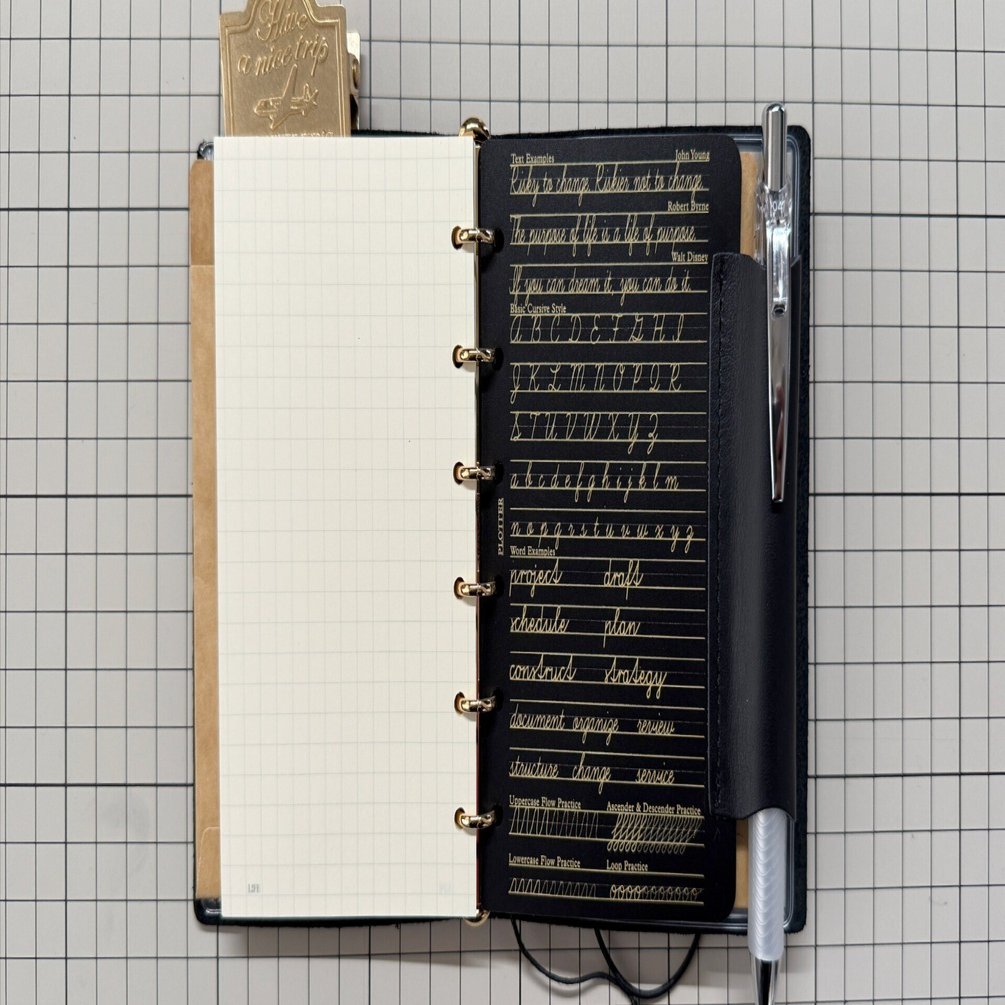 Have
a nice trip
Text Examples John Young
Risky to change. Riskier not to change.
Robert Byrne
The purpose of life is a life of purpose.
Walt Disney
If you can dream it, you can do it.
Basic Cursive Style
A B C D E F G H I
J K L M N O P Q R
S T U V W X Y Z
a b c d e f g h i j k l m
n o p q r s t u v w x y z
PLOTTER
Word Examples
project draft
schedule plan
construct strategy
document organize review
structure change service
Uppercase Flow Practice Ascender & Descender Practice
Lowercase Flow Practice Loop Practice
LIFE